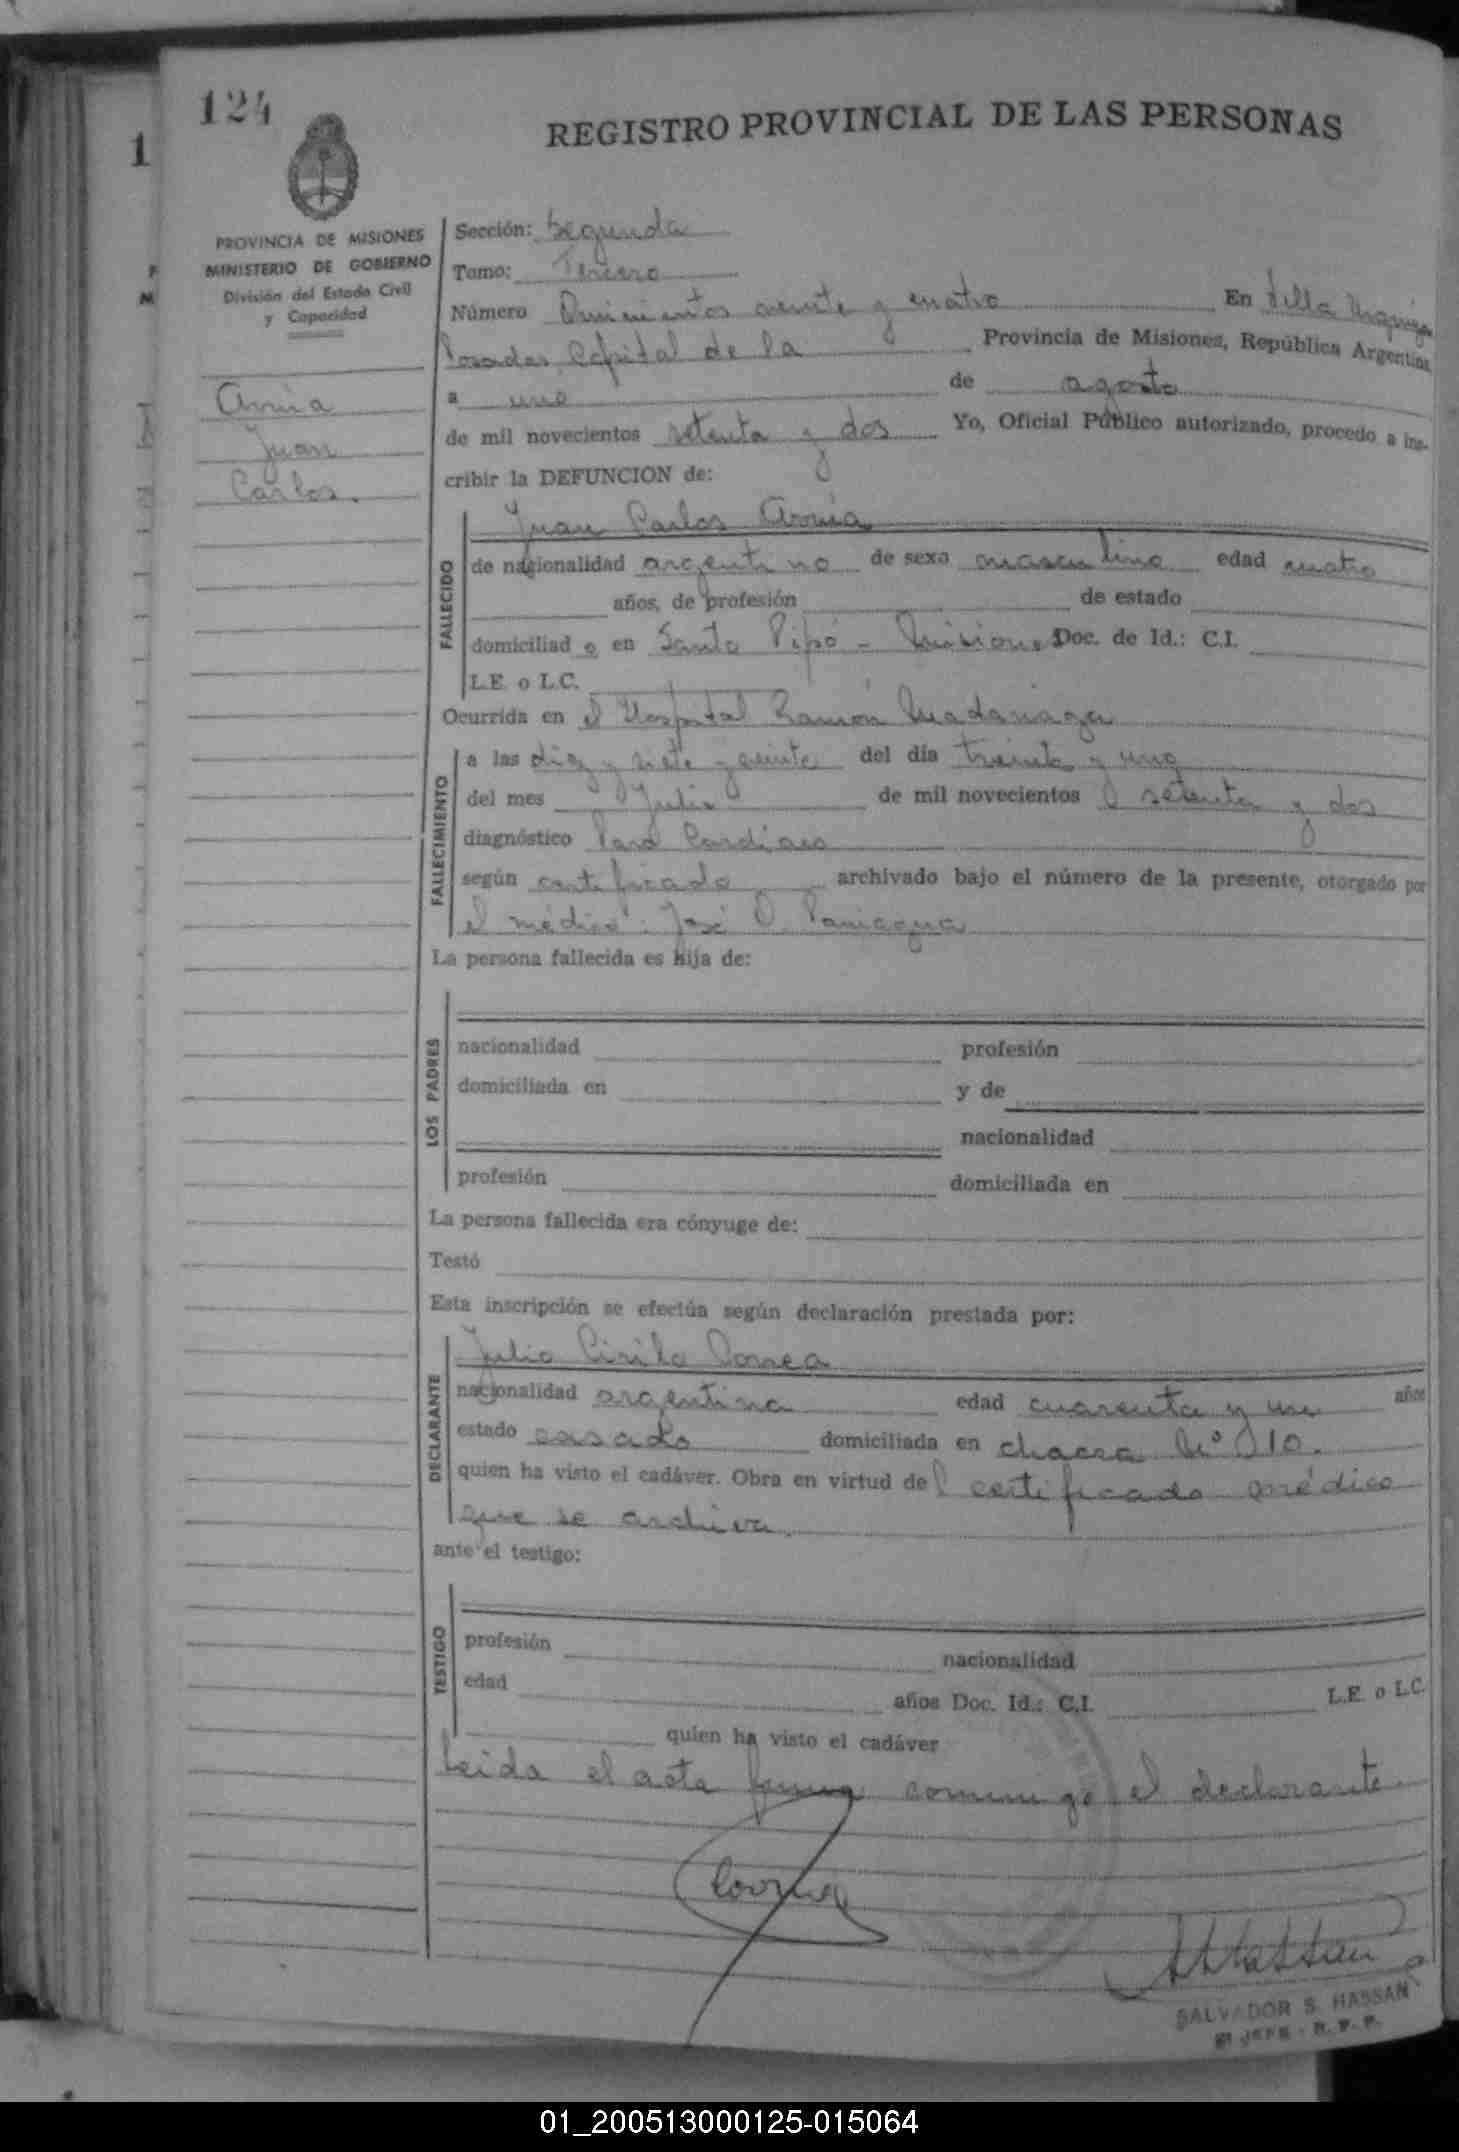 124
REGISTRO PROVINCIAL DE LAS PERSONAS
1
PROVINCIA DE MISIONES
MINISTERIO DE GOBIERNO
División del Estado Civil
y Capacidad
Arrua
Juan
Carlos.
Sección: Segunda
Tomo: Tercero
Número Quinientos veinte y cuatro En Villa Urquiza
Posadas, Capital de la Provincia de Misiones, República Argentina
a uno de agosto
de mil novecientos setenta y dos Yo, Oficial Público autorizado, procedo a ins-
cribir la DEFUNCION de:
FALLECIDO
Juan Carlos Arrúa
de nacionalidad argentino de sexo masculino edad cuatro
años, de profesión de estado
domiciliad o en Santo Pipó - Misiones Doc. de Id.: C.I.
L.E. o L.C.
Ocurrida en el Hospital Ramón Madariaga
FALLECIMIENTO
a las diez y siete y veinte del día treinta y uno
del mes Julio de mil novecientos setenta y dos
diagnóstico Paro Cardiaco
según certificado archivado bajo el número de la presente, otorgado por
el médico: José Paniagua
La persona fallecida es hija de:
LOS PADRES
nacionalidad profesión
domiciliada en y de
nacionalidad
profesión domiciliada en
La persona fallecida era cónyuge de:
Testó
Esta inscripción se efectúa según declaración prestada por:
DECLARANTE
Julio Cirilo Correa
nacionalidad argentina edad cuarenta y un años
estado casado domiciliada en chacra Nº 10.
quien ha visto el cadáver. Obra en virtud del certificado médico
que se archiva.
ante el testigo:
TESTIGO
profesión nacionalidad
edad años Doc. Id.: C.I. L.E. o L.C.
quien ha visto el cadáver
Leida el acta firma conmigo el declarante.
SALVADOR S. HASSAN
JEFE - R. P. P.
01_200513000125-015064